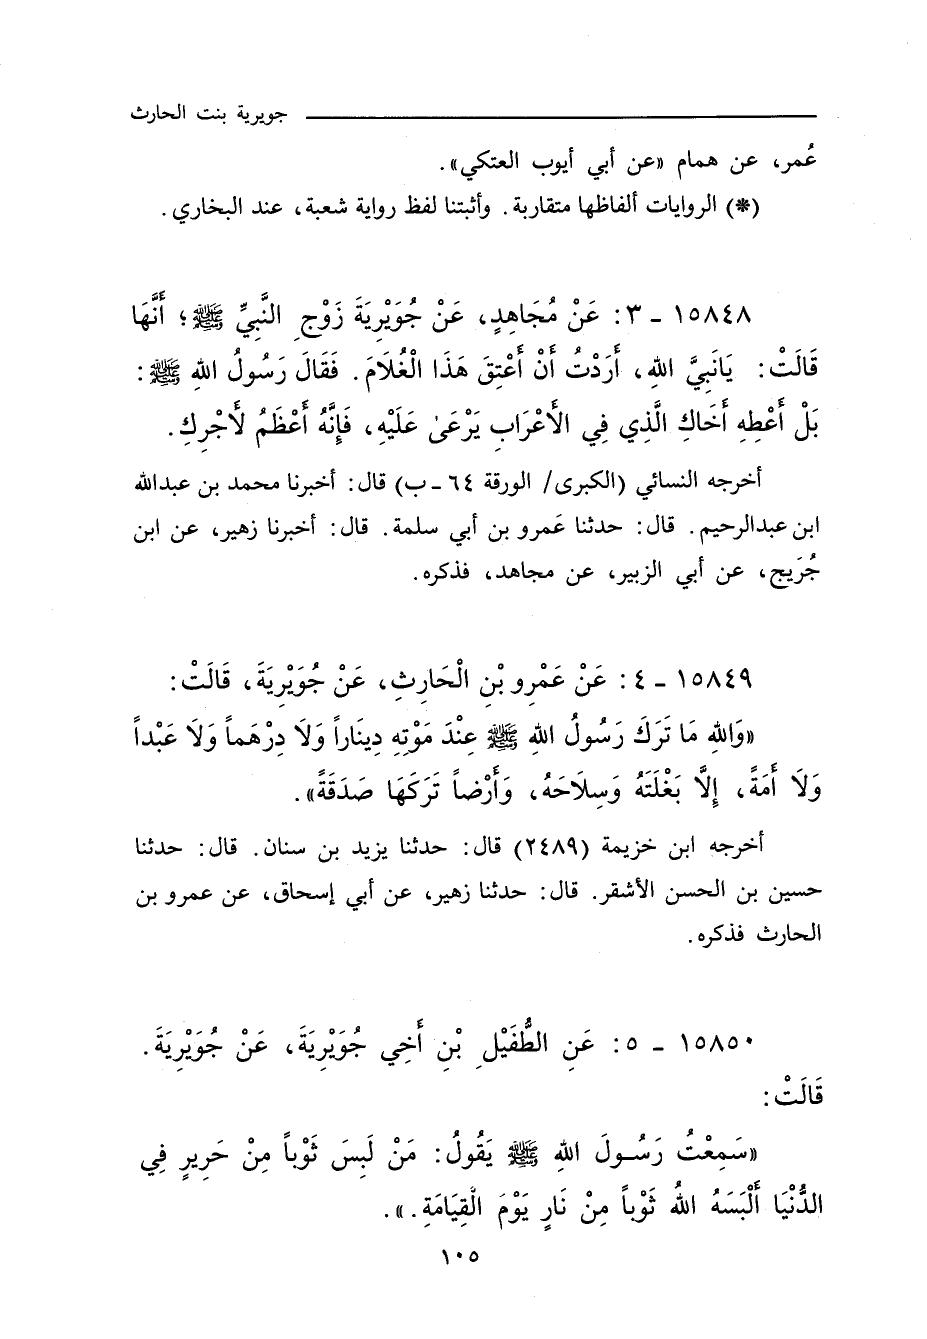 جويرية بنت الحارث
عُمر، عن همام «عن أبي أيوب العتكي».
(*) الروايات ألفاظها متقاربة. وأثبتنا لفظ رواية شعبة، عند البخاري.
١٥٨٤٨ ـ ٣: عَنْ مُجَاهِدٍ، عَنْ جُوَيْرِيَةَ زَوْجِ النَّبِيِّ ﷺ؛ أَنَّهَا
قَالَتْ: يَانَبِيَّ اللهِ، أَرَدْتُ أَنْ أَعْتِقَ هَذَا الْغُلَامَ. فَقَالَ رَسُولُ اللهِ ﷺ:
بَلْ أَعْطِهِ أَخَاكِ الَّذِي فِي الأَعْرَابِ يَرْعَىٰ عَلَيْهِ، فَإِنَّهُ أَعْظَمُ لأَجْرِكِ.
أخرجه النسائي (الكبرى/ الورقة ٦٤ ـ ب) قال: أخبرنا محمد بن عبدالله
ابن عبدالرحيم. قال: حدثنا عَمرو بن أبي سلمة. قال: أخبرنا زهير، عن ابن
جُرَيج، عن أبي الزبير، عن مجاهد، فذكره.
١٥٨٤٩ ـ ٤: عَنْ عَمْرِو بْنِ الْحَارِثِ، عَنْ جُوَيْرِيَةَ، قَالَتْ:
«وَاللهِ مَا تَرَكَ رَسُولُ اللهِ ﷺ عِنْدَ مَوْتِهِ دِينَاراً وَلَا دِرْهَماً وَلَا عَبْداً
وَلَا أَمَةً، إِلَّا بَغْلَتَهُ وَسِلَاحَهُ، وَأَرْضاً تَرَكَهَا صَدَقَةً».
أخرجه ابن خزيمة (٢٤٨٩) قال: حدثنا يزيد بن سنان. قال: حدثنا
حسين بن الحسن الأشقر. قال: حدثنا زهير، عن أبي إسحاق، عن عمرو بن
الحارث فذكره.
١٥٨٥٠ ـ ٥: عَنِ الطُّفَيْلِ بْنِ أَخِي جُوَيْرِيَةَ، عَنْ جُوَيْرِيَةَ.
قَالَتْ:
«سَمِعْتُ رَسُولَ اللهِ ﷺ يَقُولُ: مَنْ لَبِسَ ثَوْباً مِنْ حَرِيرٍ فِي
الدُّنْيَا أَلْبَسَهُ اللهُ ثَوْباً مِنْ نَارٍ يَوْمَ الْقِيَامَةِ.».
١٠٥